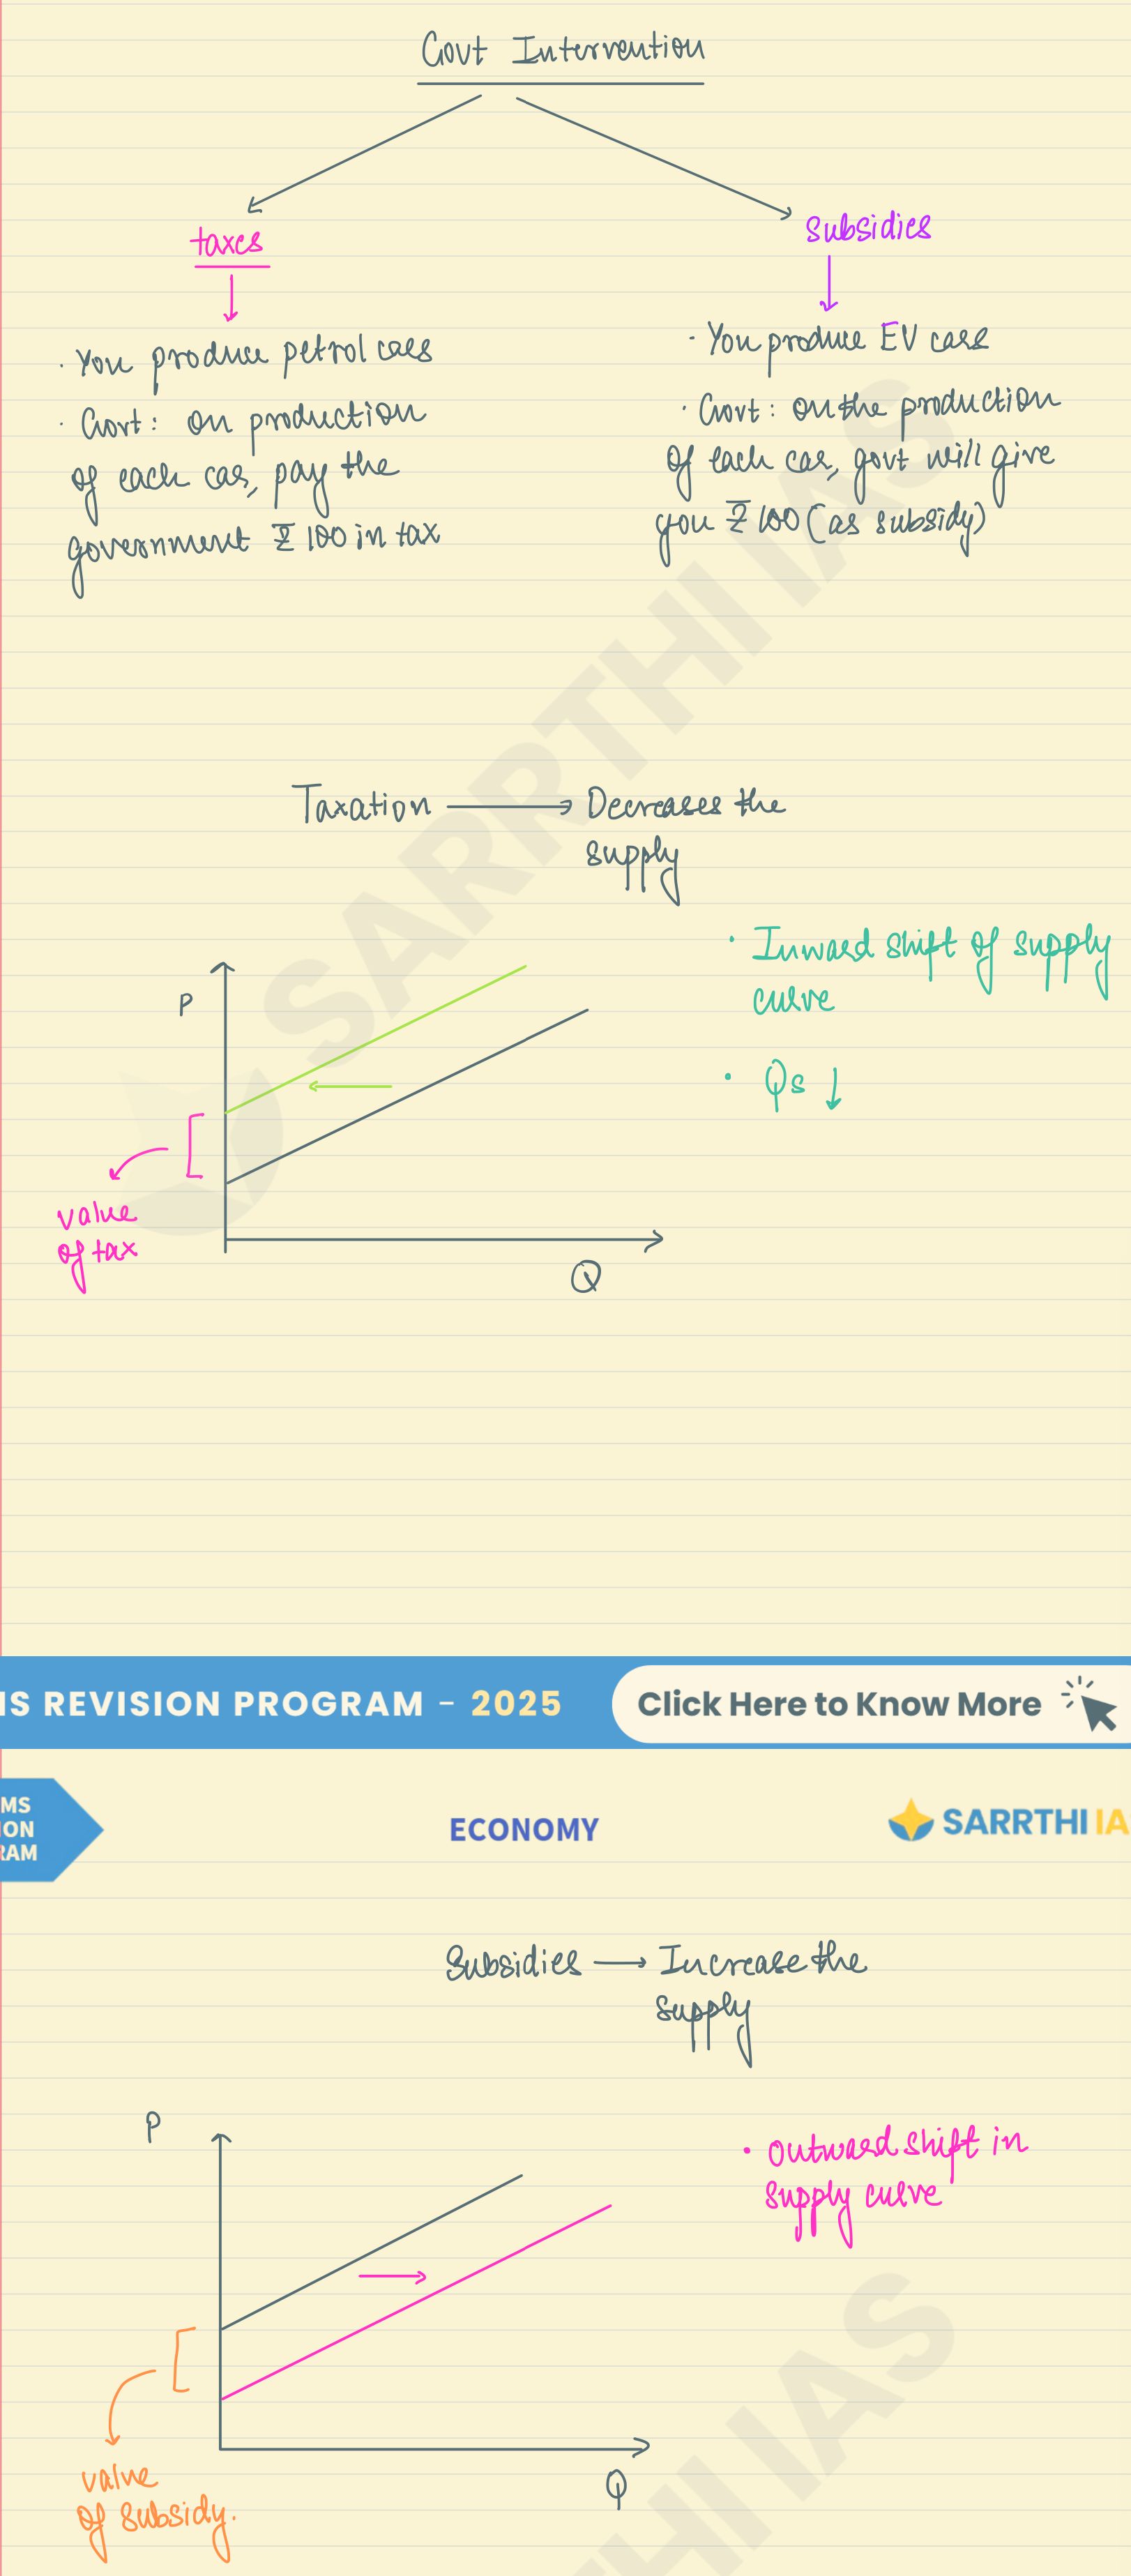 Govt Intervention
taxes
· You produce petrol cars
· Govt: on production
of each car, pay the
government ₹ 100 in tax
subsidies
· You produce EV cars
· Govt: on the production
of each car, govt will give
you ₹ 100 (as subsidy)
Taxation → Decreases the
supply
• Inward shift of supply
curve
• Qs ↓
P
value
of tax
Q
SARRTHI IAS
IS REVISION PROGRAM - 2025
Click Here to Know More
MS
ION
RAM
ECONOMY
SARRTHI IA
Subsidies → Increase the
supply
P
• Outward shift in
supply curve
value
of subsidy.
Q
THI IAS